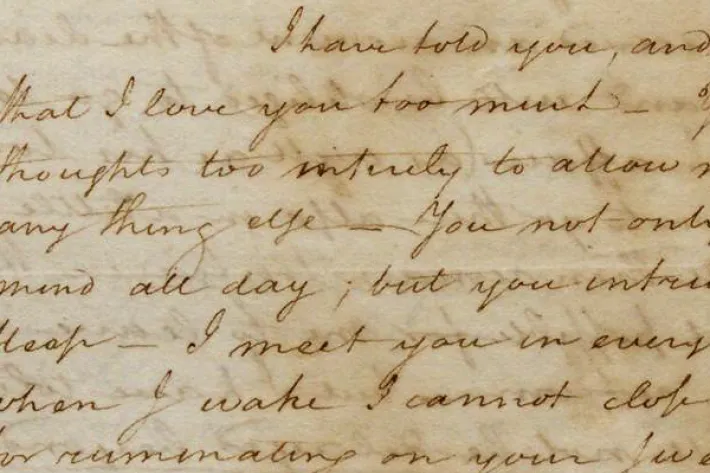 I have told you, and
that I love you too much –
thoughts too intirely to allow
any thing else – You not only
mind all day; but you intru
sleep – I meet you in every
when I wake I cannot close
for ruminating on your swe